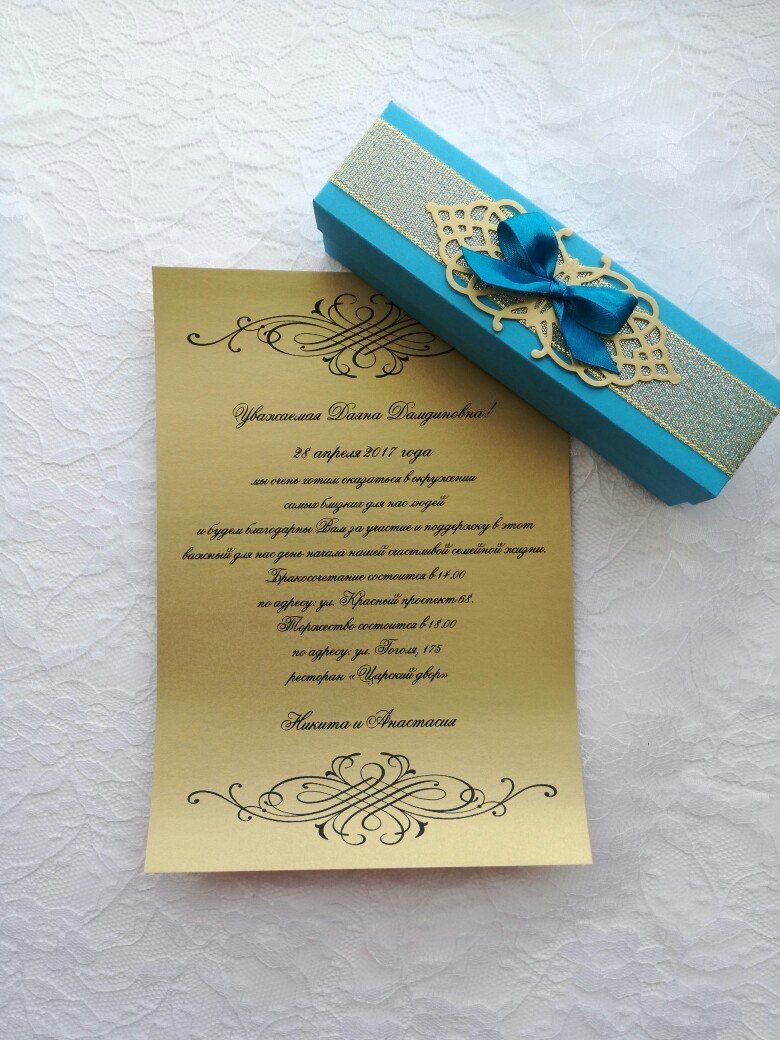 Уважаемая Даяна Дамдиновна!
28 апреля 2017 года
мы очень хотим оказаться в окружении
самых близких для нас людей
и будем благодарны Вам за участие и поддержку в этот
важный для нас день начала нашей счастливой семейной жизни.
Бракосочетание состоится в 14.00
по адресу: ул. Красный проспект 68.
Торжество состоится в 18.00
по адресу: ул. Гоголя, 175
ресторан «Царский двор»
Никита и Анастасия